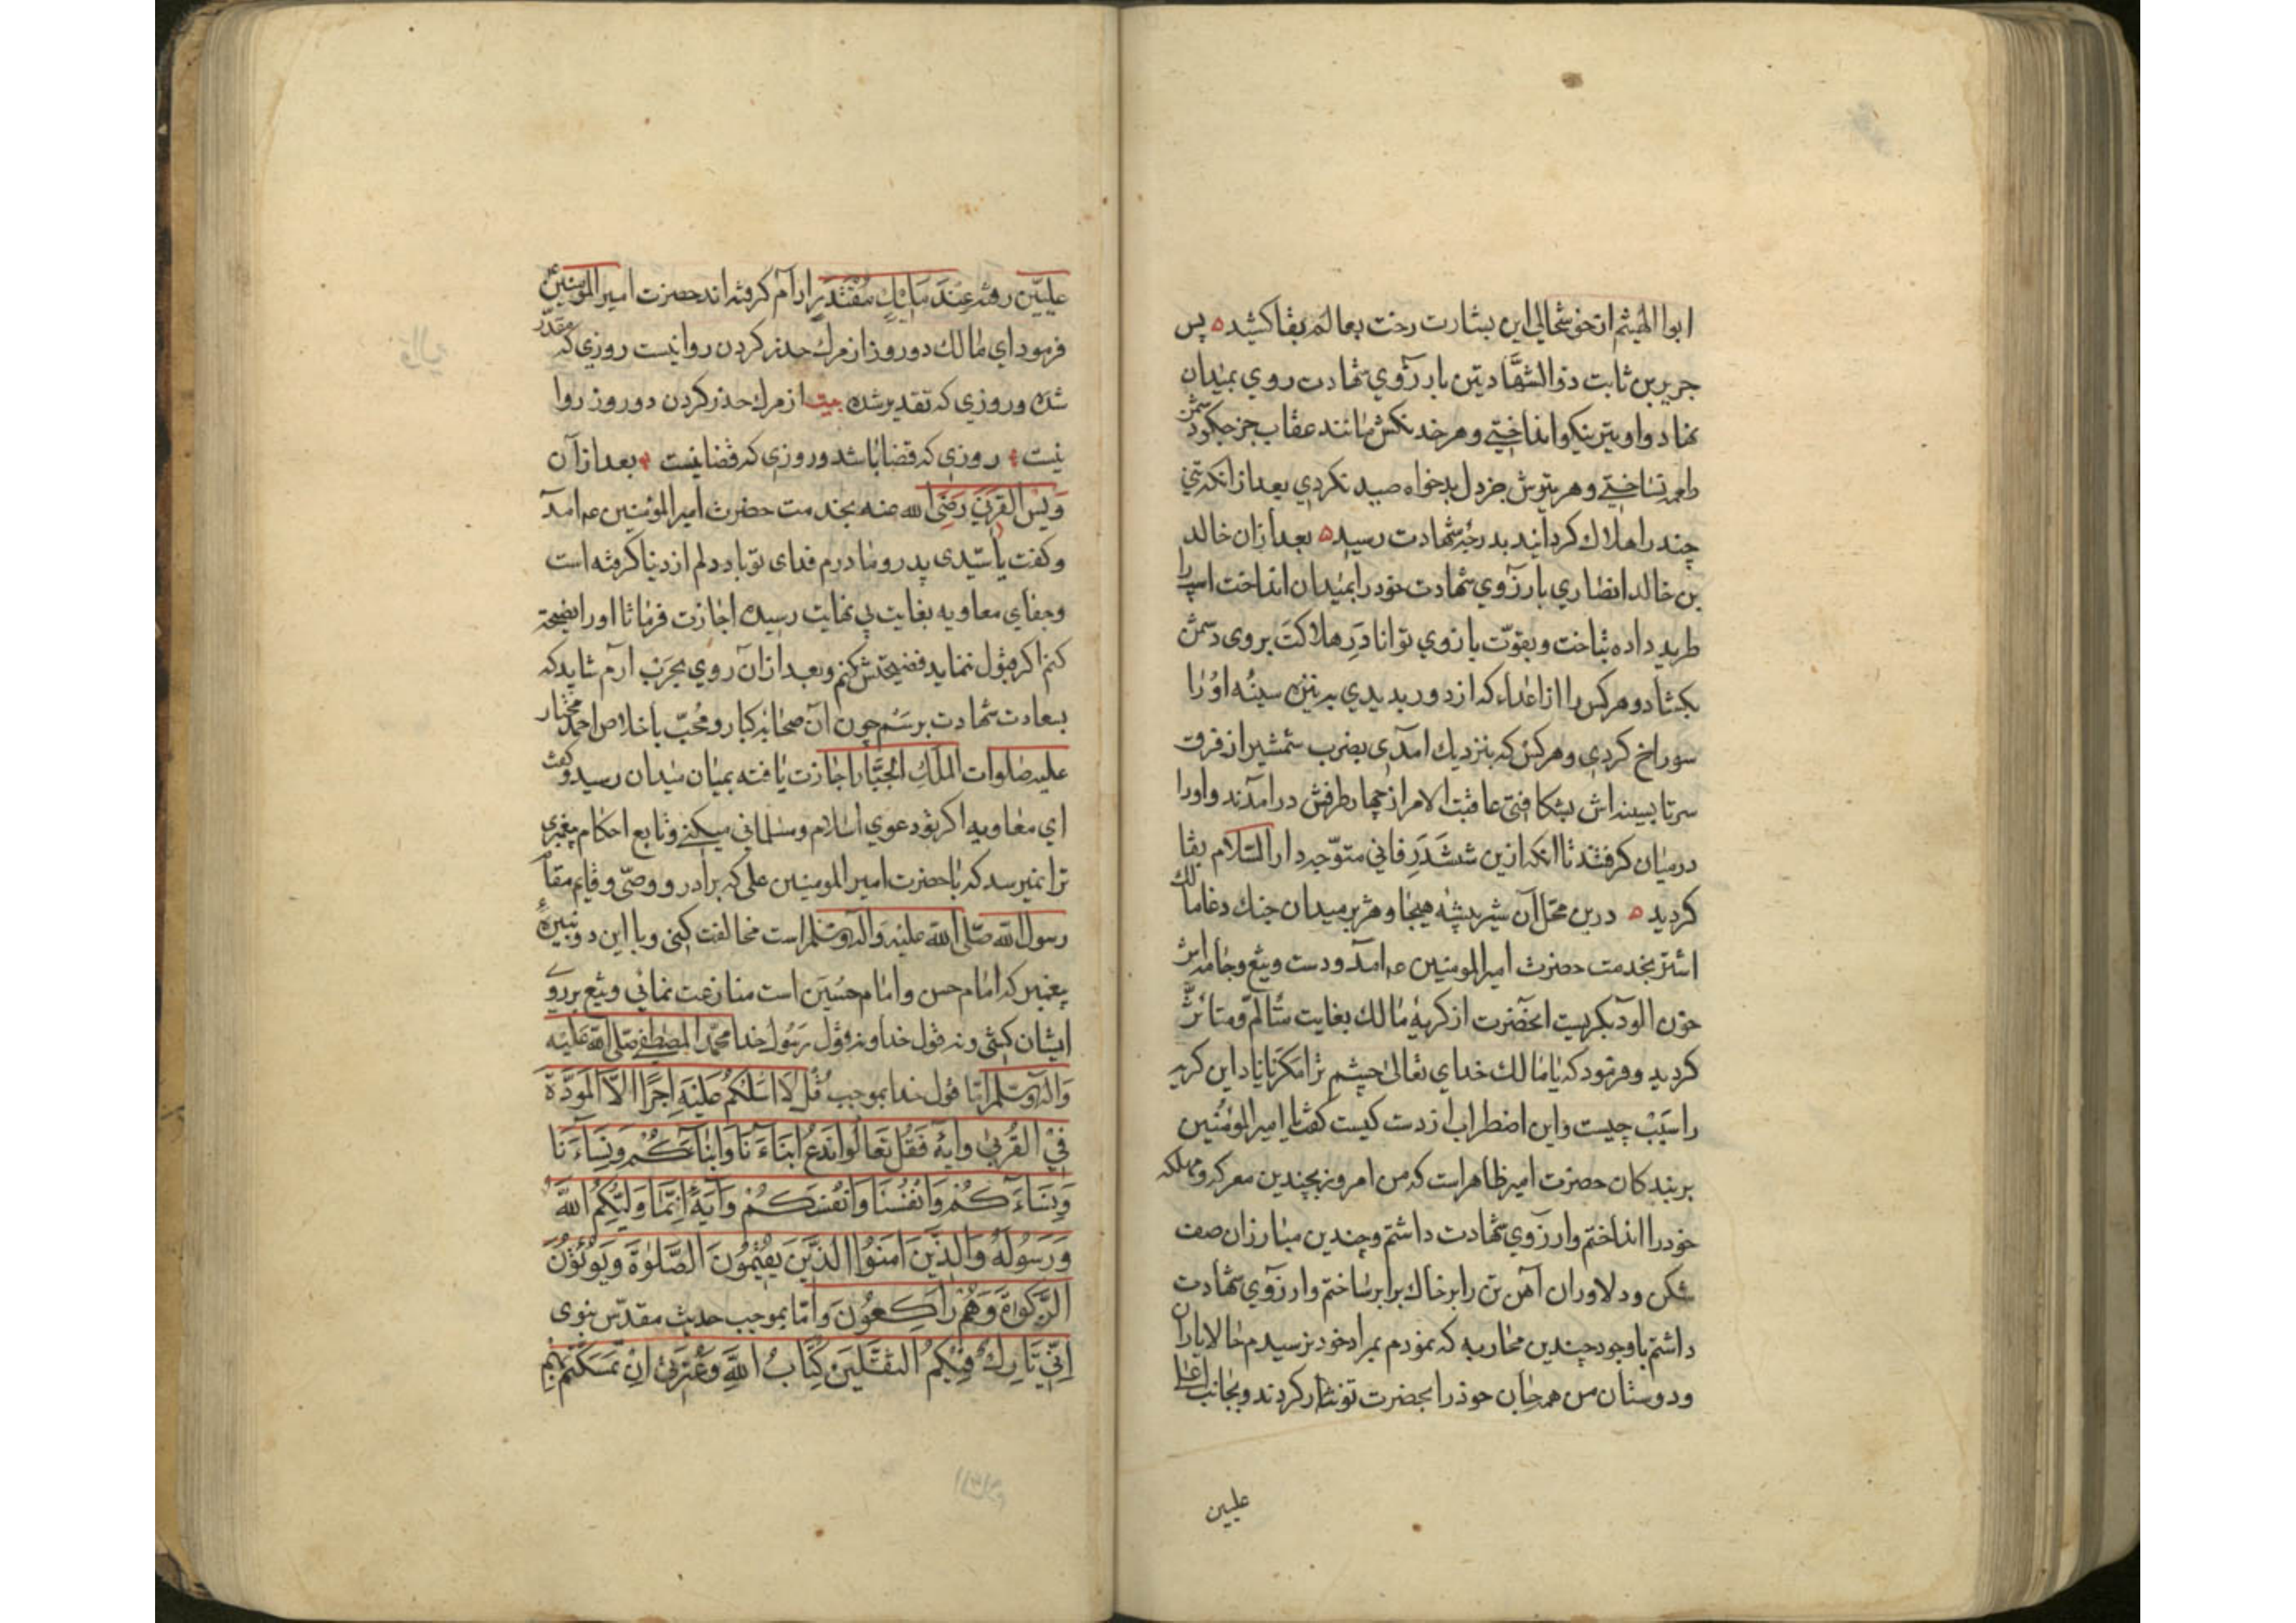 ابوالهیثم از خوشحالی این بشارت رخت بعالم بقا کشید ه پس
جریر بن ثابت ذوالشهادتین بارزوی شهادت روی بمیدان
نهاد و او تیر نیکو انداختی و هر خدنکش مانند عقاب جز جکر دشمن
طعمه نساختی و هر تیرش جز دل بدخواه صید نکردی بعد از انکه تنی
چند را هلاک کردانید بدرجه شهادت رسید ه بعد از ان خالد
بن خالد انصاری بارزوی شهادت خود را بمیدان انداخت اسپ را
طرید داده بتاخت و بقوّت بازوی توانا دَرِ هلاکت بر وی دشمن
بکشاد و هر کس را از اعداء که از دور بدیدی به نیزه سینهٔ او را
سوراخ کردی و هر کس که بنزدیک امدی بضرب شمشیر از فرق
سر تا بسینه اش بشکافتی عاقبت الامر از چهار طرفش در امدند و او را
در میان کرفتند تا انکه ازین ششدَرِ فانی متوّجه دار السّلام بقا
کردید ه درین محلّ آن شیر بیشه هیجا و هژبر میدان جنک دغا مالک
اشتر بخدمت حضرت امیرالمومنین عم امد و دست و تیغ و جامه اش
خون الود بکریست انحضرت از کریهٔ مالک بغایت متألّم و متأثّر
کردید و فرمود که یا مالک خدای تعالی چشم ترا مکریاناد این کریه
را سَبَبْ چیست و این اضطراب از دست کیست کفت یا امیرالمؤمنین
بر بندکان حضرت امیر ظاهر است که من امروز بچندین معرکه و مهلکه
خود را انداختم و ارزوی شهادت داشتم و چندین مبارزان صف
شکن و دلاوران آهن تن را بر خاک برابر ساختم و ارزوی شهادت
داشتم با وجود چندین محاربه که نمودم بمراد خود نرسیدم حالا یاران
و دوستان من همه جان خود را بحضرت تو نثار کردند و بجانب اعلی
علیین
علیّین رفته عِندَ مَلیکٍ مُقْتَدِرٍ ارام کرفته اند حضرت امیرالمؤمنین عم
فرمود ای مالک دو روز از مرک حذر کردن روا نیست روزی که مقدّر
شده و روزی که تقدیر شده بیت از مرک حذر کردن دو روز روا
نیست روزی که قضا باشد و روزی که قضا نیست بعد از آن
وَیْس القَرَنی رَضِیَ الله عنه بخدمت حضرت امیرالمؤمنین عم امد
و کفت یا سیّدی پدر و مادرم فدای تو باد دلم از دنیا کرفته است
و جفای معاویه بغایت بی نهایت رسیده اجازت فرما تا او را نصیحة
کنم اکر قبول ننماید فضیحتش کنم و بعد از آن روی بحرب ارم شاید که
بسعادت شهادت برسَم چون آن صحابهٔ کبار و مُحّب با خلاص احمد مختار
علیه صلوات المَلِکِ الجَبّار اجازت یافته بمیان میدان رسید و کفت
ای معاویه اکر تو دعوی اسلام و مسلمانی میکنی و تابع احکام پیغمبری
ترا نمیرسد که با حضرت امیرالمومنین علی که برادر و وصیّ و قایم مقام
رسول اللّه صَلّی اللّه علیه وَاله وسَلم است مخالفت کنی و با این دو نبیرهٔ
پیغمبر که امام حسن و امام حُسَین است منازعت نمائی و تیغ بر روی
ایشان کشی و نه قول خدا و نه قول رسُول خدا محمّد المصطفی صَلّی اللّه عَلَیه
وَاله وسَلم امّا قول خدا بموجب قُلْ لَا اَسْئَلُکُمْ عَلَیْهِ اَجْرًا اِلَّا الْمَوَدَّةَ
فِی الْقُرْبٰی وایهٔ فَقُلْ تَعَالَوْا نَدْعُ اَبْنَاءَنَا وَاَبْنَاءَکُمْ وَنِسَاءَنَا
وَنِسَاءَکُمْ وَاَنْفُسَنَا وَاَنْفُسَکُمْ وَایَهٔ اِنَّمَا وَلِیُّکُمُ اللّٰهُ
وَرَسُولُهُ وَالَّذِینَ اٰمَنُوا الَّذِینَ یُقِیمُونَ الصَّلٰوةَ وَیُؤْتُونَ
الزَّکٰوةَ وَهُمْ رَاکِعُونَ وَامّا بموجب حدیث مقدّس نبوی
اِنِّی تَارِکٌ فِیْکُمُ الثَّقَلَیْنِ کِتَابُ اللّٰهِ وَعِتْرَتِی اِنْ تَمَسَّکْتُمْ بِهِمْ